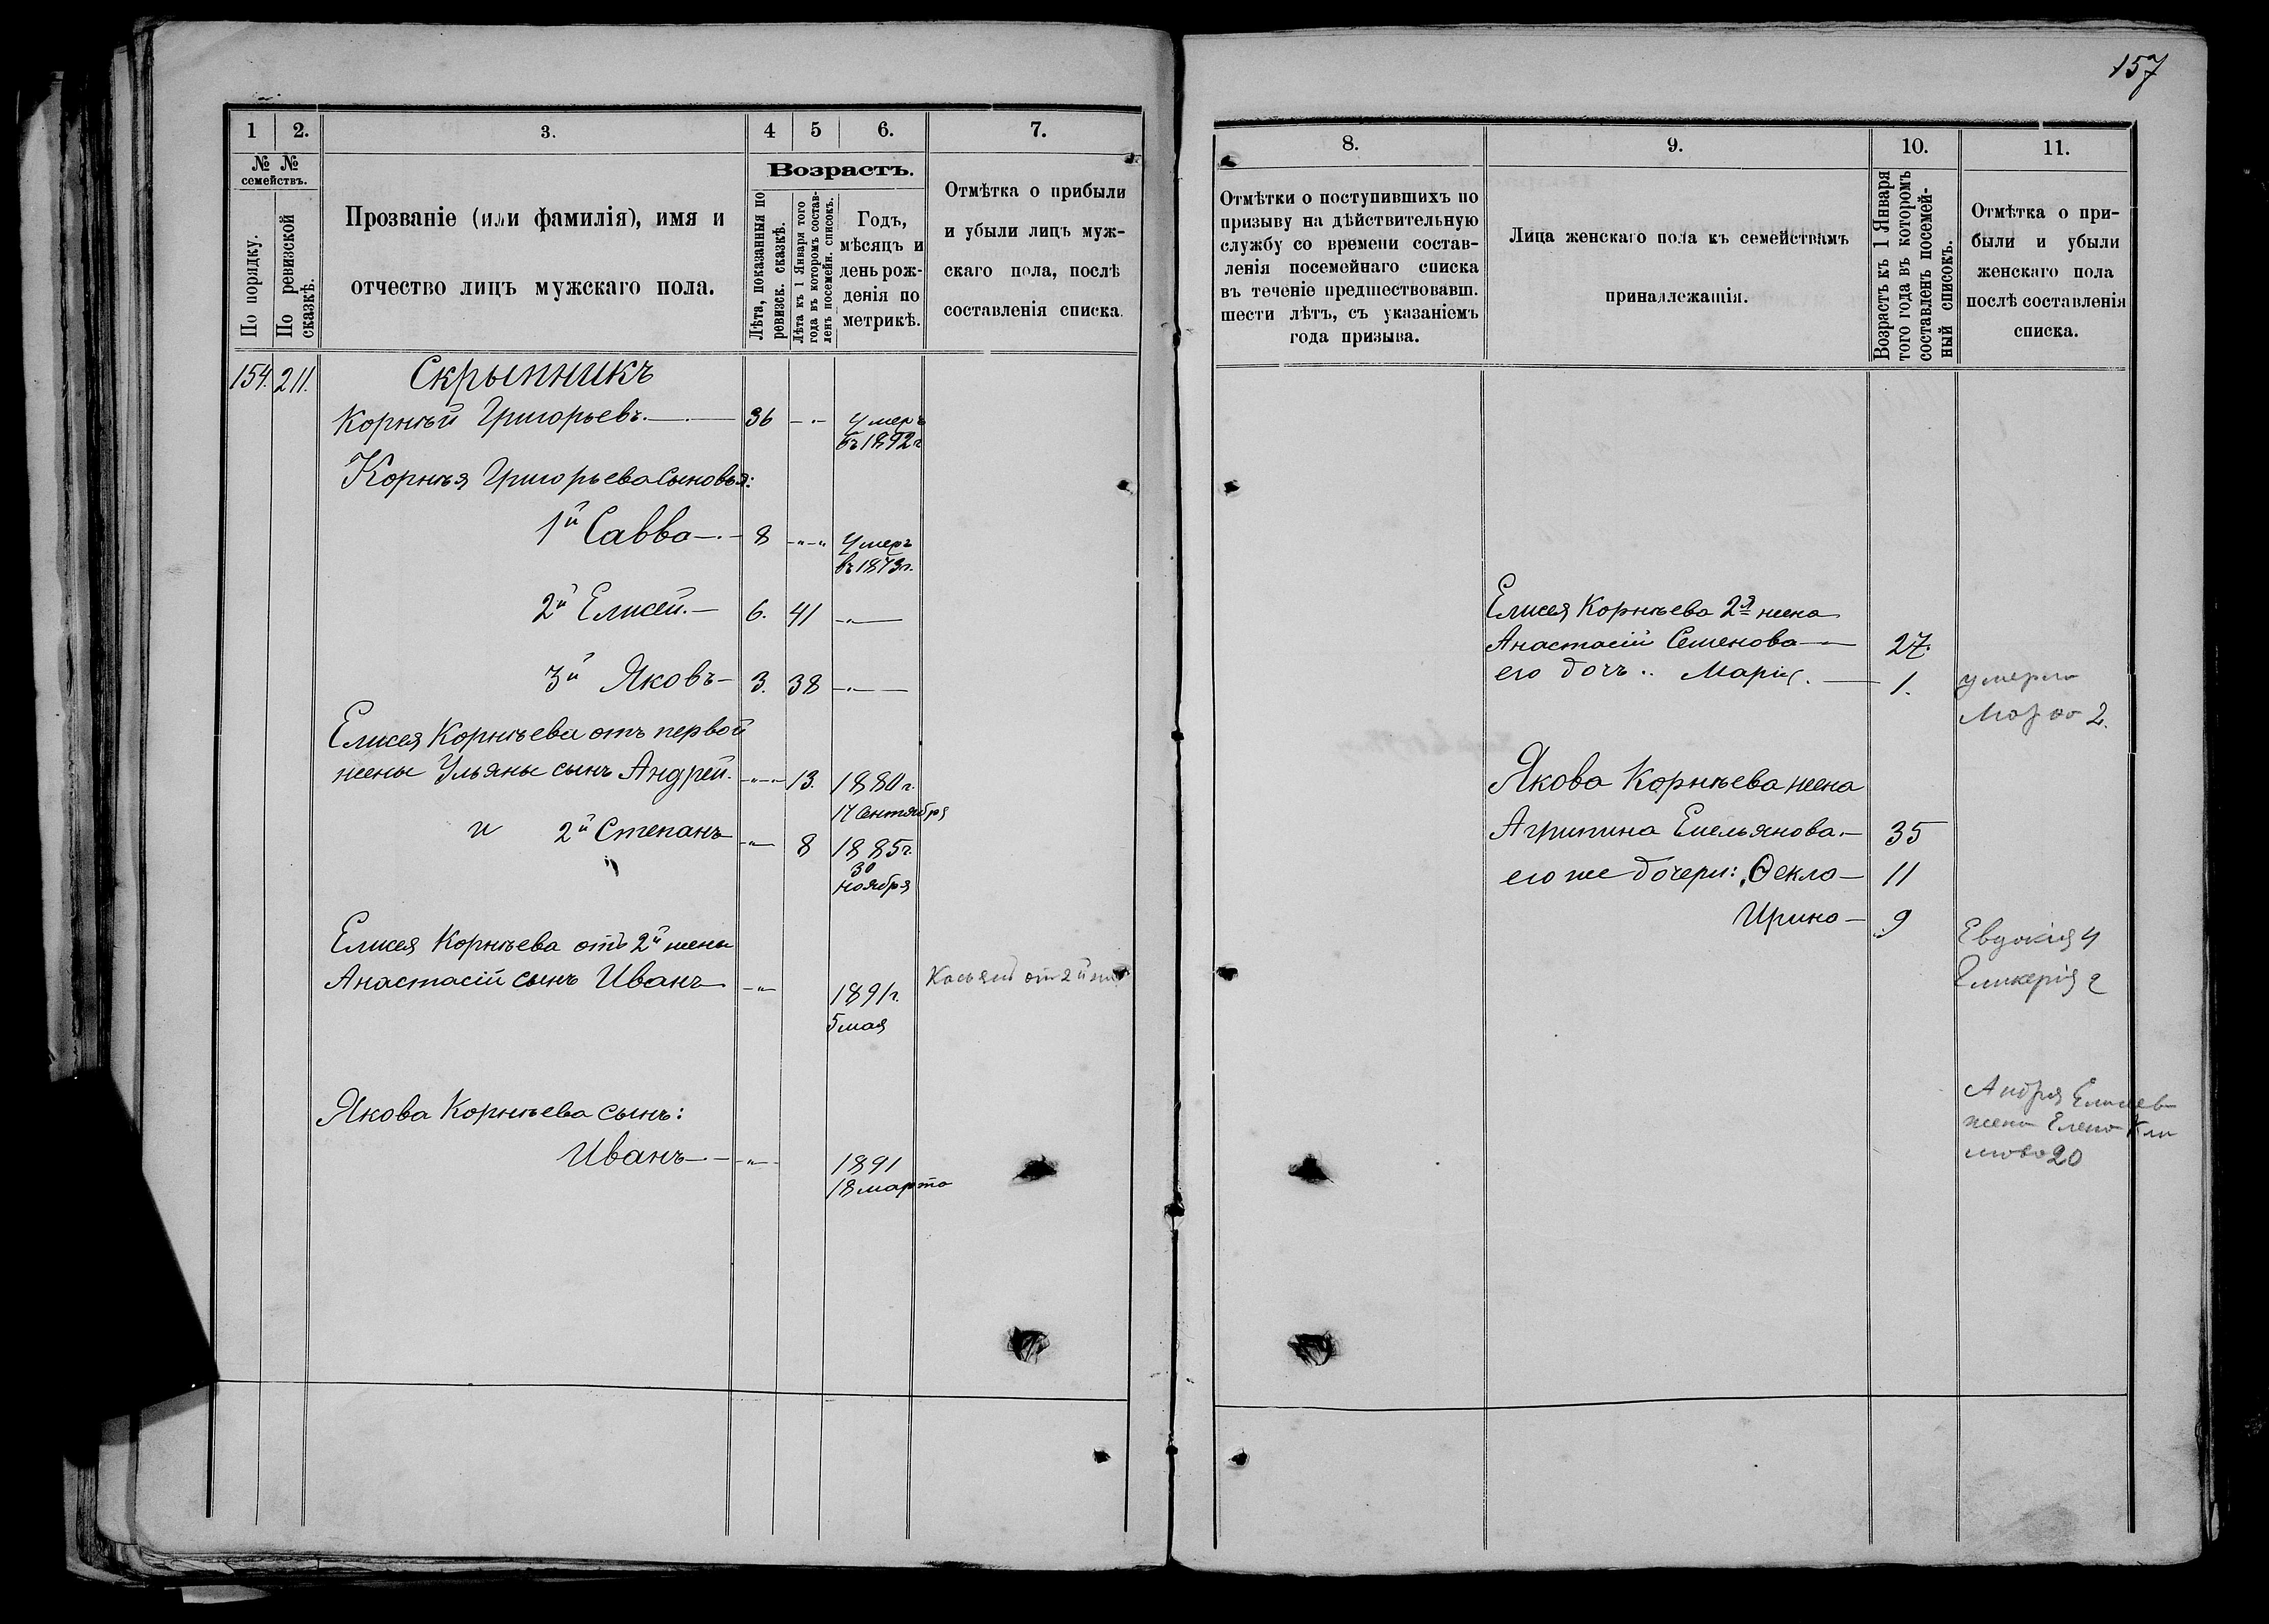 157
1
2.
3.
4
5
6.
7.
№ №
семействъ.
По порядку.
По ревизской
сказкѣ.
Прозваніе (или фамилія), имя и
отчество лицъ мужскаго пола.
Возрастъ.
Лѣта, показанныя по
ревизск. сказкѣ.
Лѣта къ 1 Января того
года въ которомъ состав-
ленъ посемейн. списокъ.
Годъ,
мѣсяцъ и
день рож-
денія по
метрикѣ.
Отмѣтка о прибыли
и убыли лицъ муж-
скаго пола, послѣ
составленія списка.
154. 211. Скрыпникъ
Корнѣй Григорьевъ. 36 Умеръ
въ 1892 г
Корнѣя Григорьева сыновья:
1й Савва 8 Умеръ
въ 1873 г.
2й Елисей. 6. 41
3й Яковъ 3. 38
Елисея Корнѣева отъ первой
жены Ульяны сынъ Андрей. 13. 1880 г.
17 Сентября
и 2й Степанъ 8 1885 г.
30
ноября
Елисея Корнѣева отъ 2й жены
Анастасіи сынъ Иванъ 1891 г.
5 мая
Касьянъ от 2й
Якова Корнѣева сынъ:
Иванъ 1891
18 марта
8.
9.
10.
11.
Отмѣтки о поступившихъ по
призыву на дѣйствительную
службу со времени состав-
ленія посемейнаго списка
въ теченіе предшествовавш.
шести лѣтъ, съ указаніемъ
года призыва.
Лица женскаго пола къ семействамъ
принадлежащія.
Возрастъ къ 1 Января
того года въ которомъ
составленъ посемей-
ный списокъ.
Отмѣтка о при-
были и убыли
женскаго пола
послѣ составленія
списка.
Елисея Корнѣева 2я жена
Анастасіи Семенова 27.
его дочь .. Марія. 1. умерла
2.
Якова Корнѣева жена
Агрипина Емельянова. 35
его же дочери: Ѳекла 11
Ирина 9
Евдокія 4
Гликерія 2
Андрея Елисеев
жена Елена Кли
мова 20